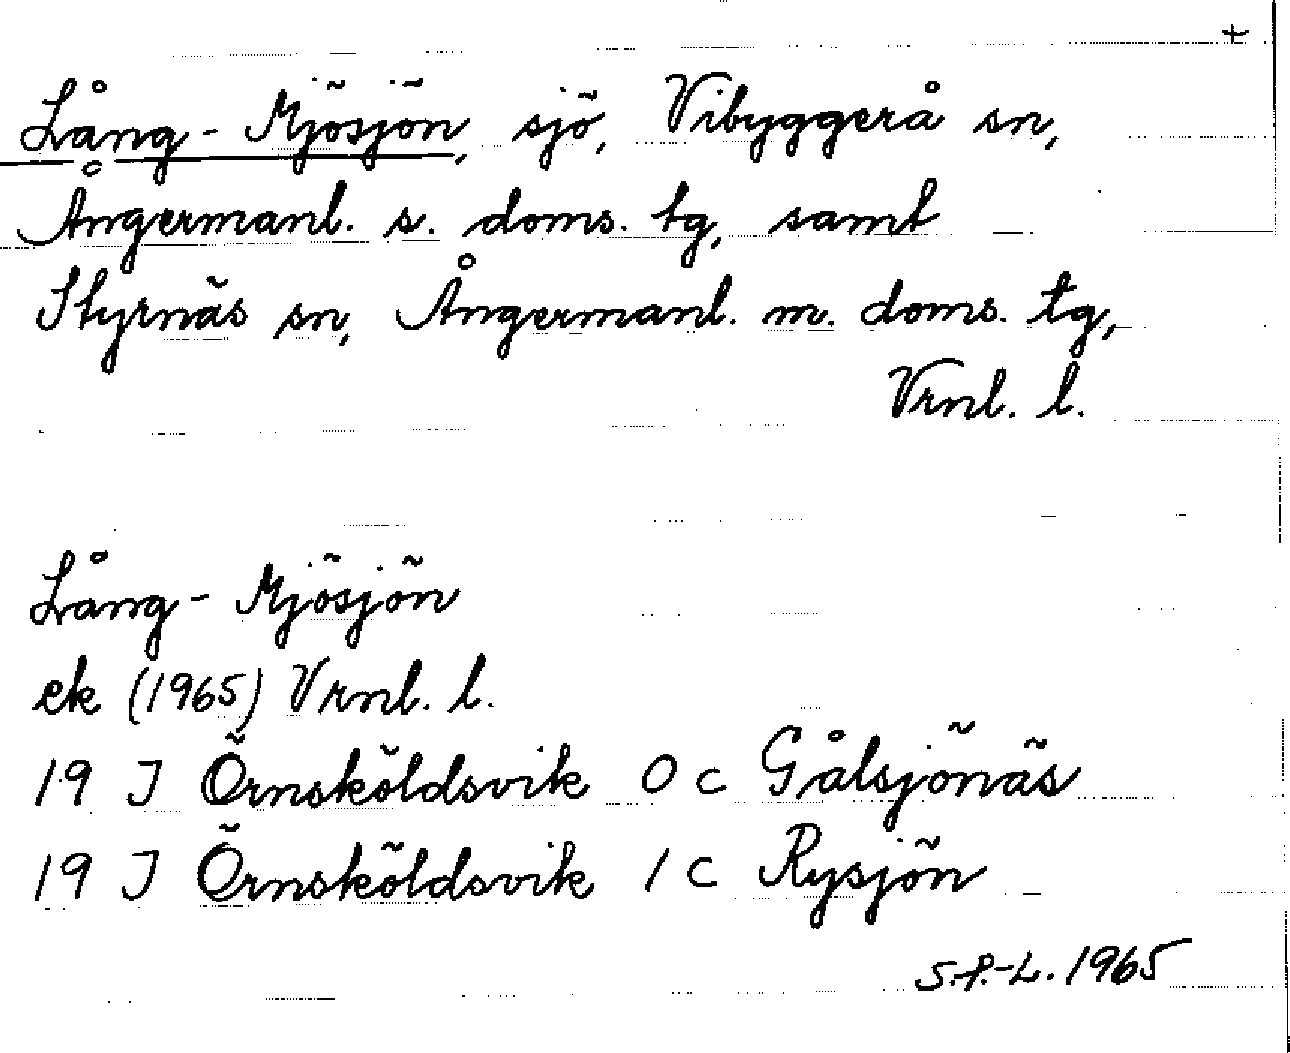 +
Lång-Mjösjön, sjö, Vibyggerå sn,
Ångermanl. s. doms. tg, samt
Styrnäs sn, Ångermanl. m. doms. tg,
Vrnl. l.
Lång-Mjösjön
ek (1965) Vrnl. l.
19 J Örnsköldsvik 0 c Gålsjönäs
19 J Örnsköldsvik 1 c Rysjön
S.P.-L. 1965